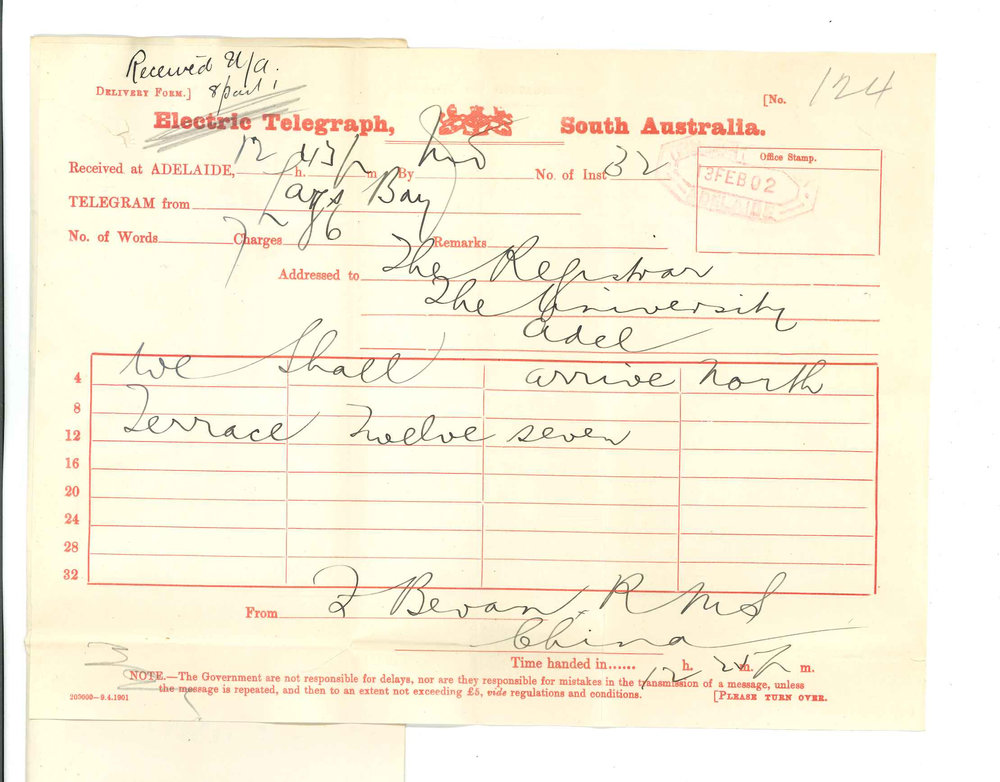 Received
DELIVERY FORM.]
[No. 124
Electric Telegraph, South Australia.
Received at ADELAIDE, 12 h. 43 p m. By No. of Inst 32
Office Stamp.
13 FEB 02
ADELAIDE
TELEGRAM from Largs Bay
No. of Words 7 Charges Remarks
Addressed to The Registrar
The University
Adel
4 We Shall arrive North
8 Terrace Twelve seven
12
16
20
24
28
32
From F Bevan R M S
China
Time handed in...... 12 h. m.
NOTE.—The Government are not responsible for delays, nor are they responsible for mistakes in the transmission of a message, unless
the message is repeated, and then to an extent not exceeding £5, vide regulations and conditions.
200000—9.4.1901 [PLEASE TURN OVER.